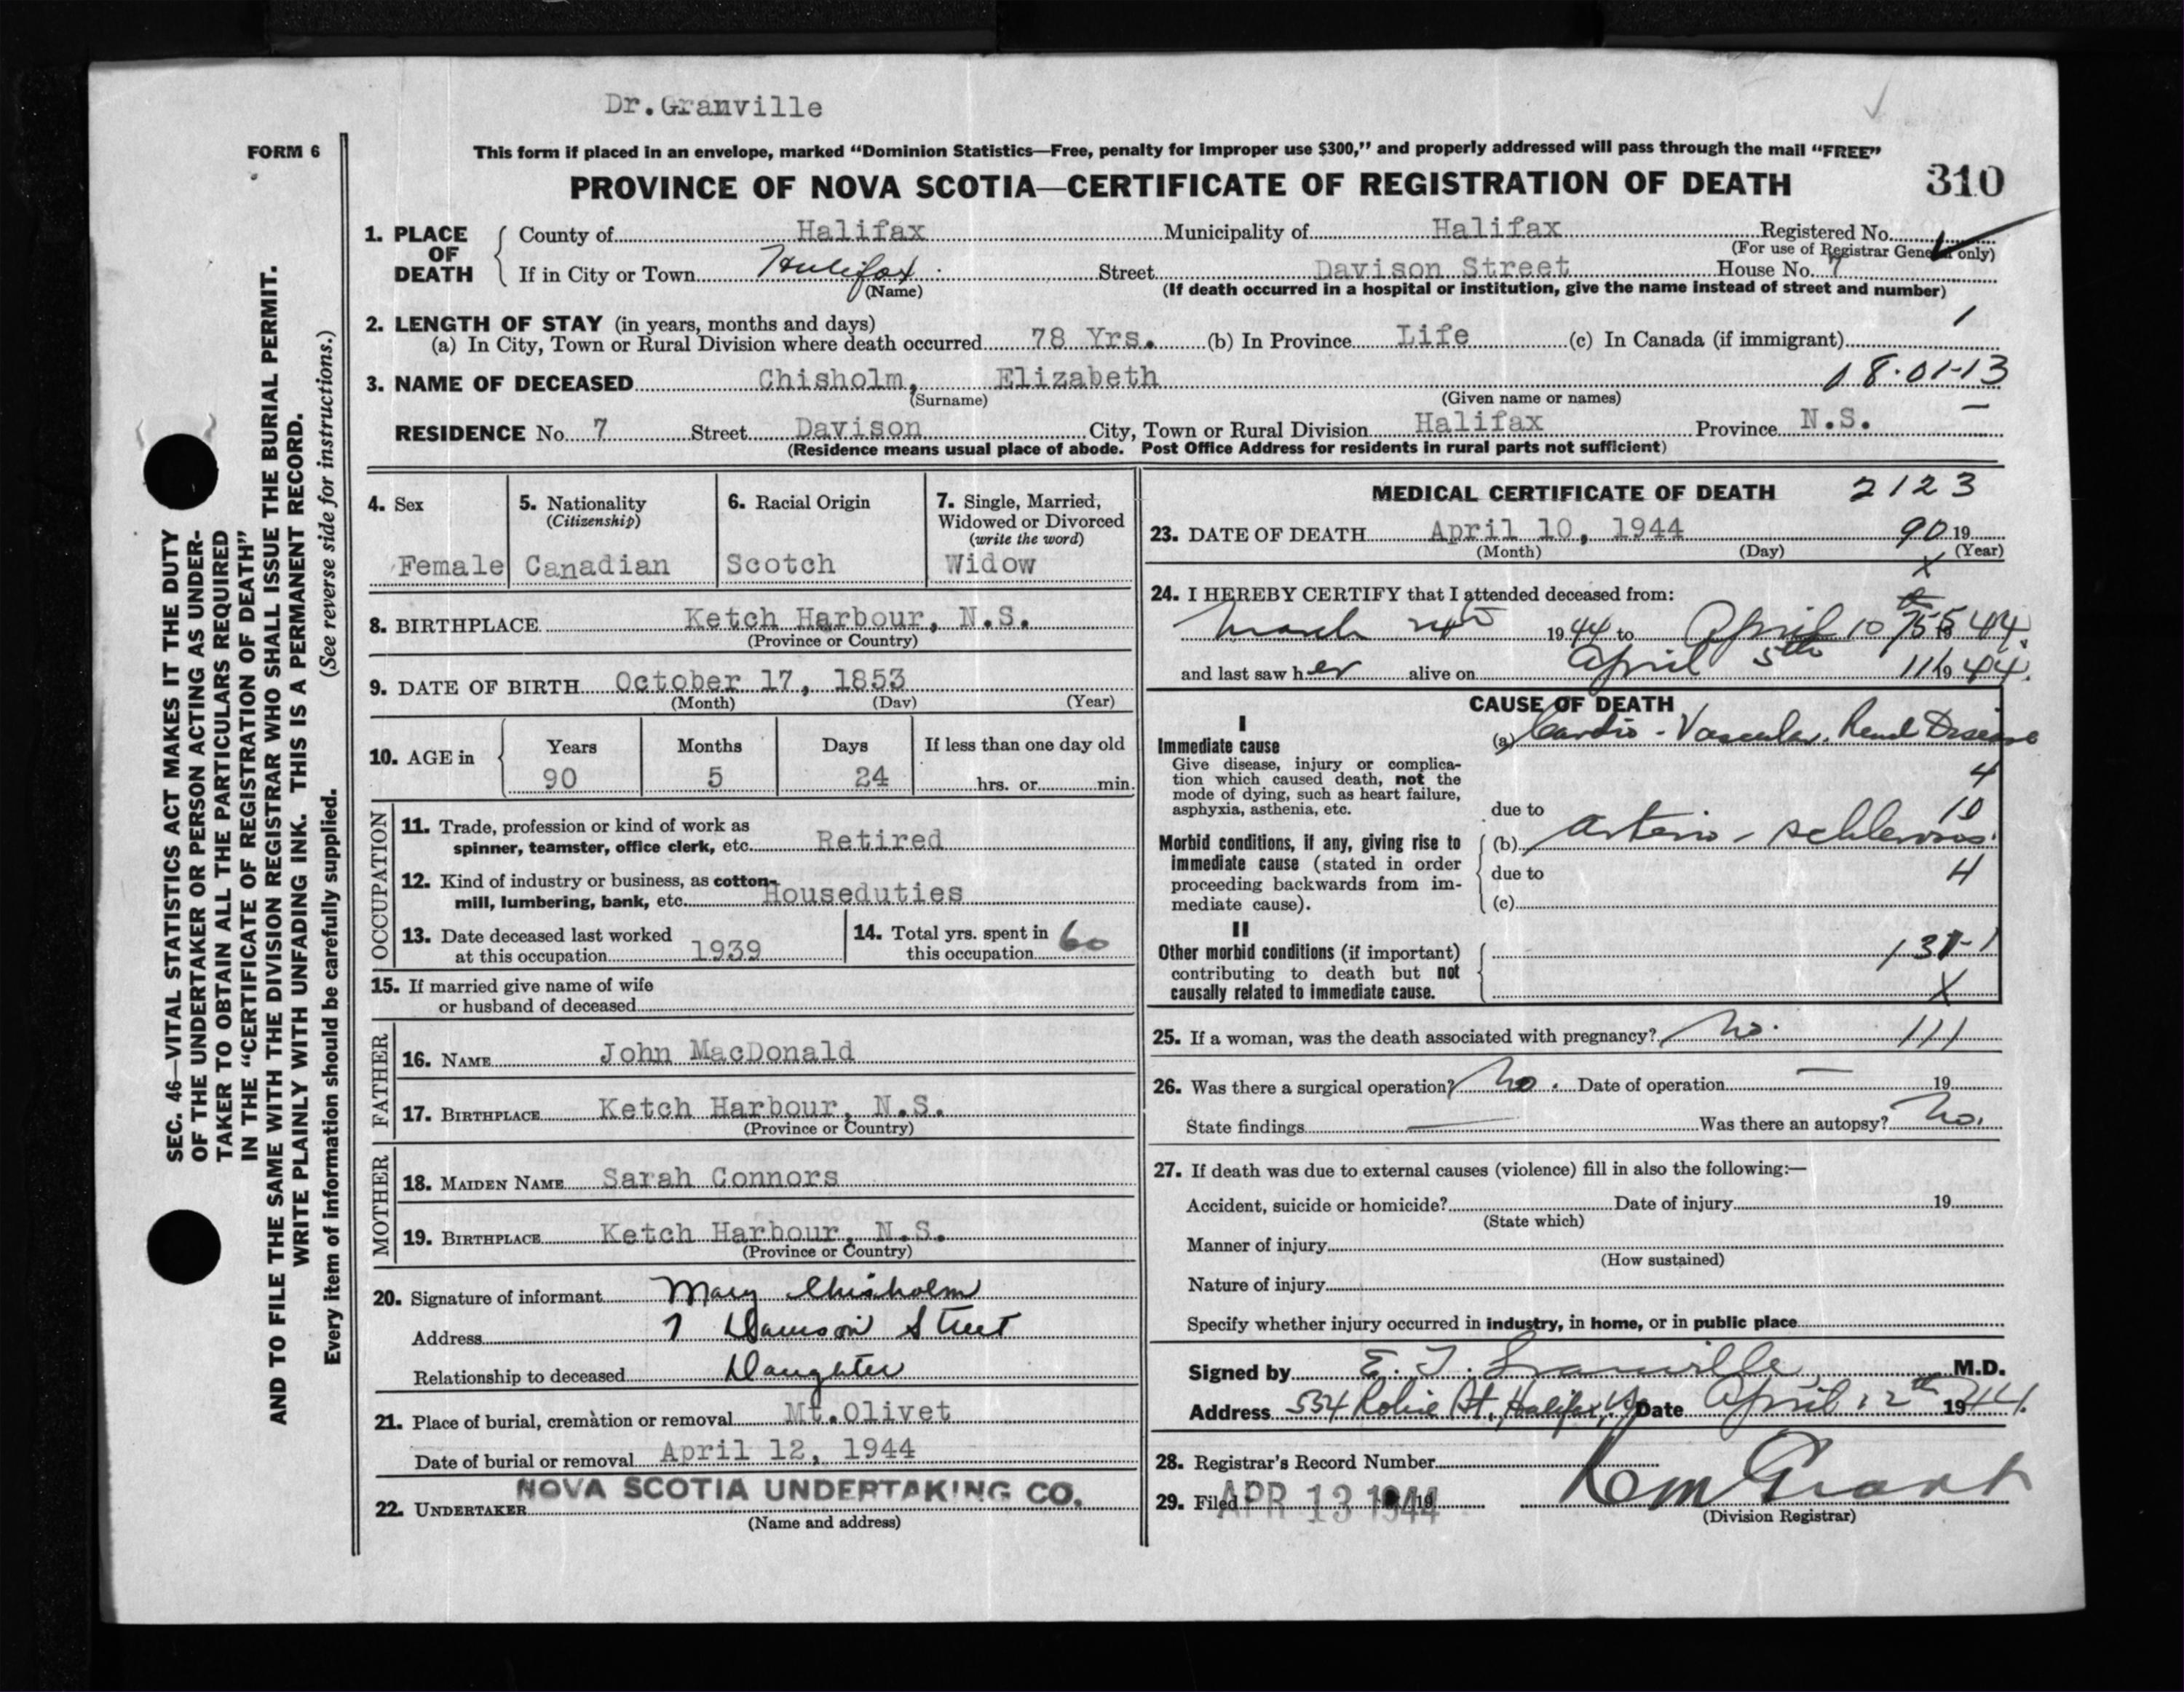 Dr.Granville
FORM 6
This form if placed in an envelope, marked “Dominion Statistics—Free, penalty for improper use $300,” and properly addressed will pass through the mail “FREE”
PROVINCE OF NOVA SCOTIA—CERTIFICATE OF REGISTRATION OF DEATH 310
1. PLACE OF DEATH
County of Halifax Municipality of Halifax Registered No.
(For use of Registrar General only)
If in City or Town Halifax Street Davison Street House No. 7
(Name) (If death occurred in a hospital or institution, give the name instead of street and number)
2. LENGTH OF STAY (in years, months and days) 1
(a) In City, Town or Rural Division where death occurred 78 Yrs. (b) In Province Life (c) In Canada (if immigrant)
3. NAME OF DECEASED Chisholm, Elizabeth 18-01-13
(Surname) (Given name or names)
RESIDENCE No. 7 Street Davison City, Town or Rural Division Halifax Province N.S.
(Residence means usual place of abode. Post Office Address for residents in rural parts not sufficient)
4. Sex
Female
5. Nationality
(Citizenship)
Canadian
6. Racial Origin
Scotch
7. Single, Married,
Widowed or Divorced
(write the word)
Widow
8. BIRTHPLACE Ketch Harbour, N.S.
(Province or Country)
9. DATE OF BIRTH October 17, 1853
(Month) (Day) (Year)
10. AGE in
Years Months Days If less than one day old
90 5 24 hrs. or min.
OCCUPATION
11. Trade, profession or kind of work as
spinner, teamster, office clerk, etc. Retired
12. Kind of industry or business, as cotton-
mill, lumbering, bank, etc. Houseduties
13. Date deceased last worked
at this occupation 1939
14. Total yrs. spent in
this occupation 60
15. If married give name of wife
or husband of deceased
FATHER
16. NAME John MacDonald
17. BIRTHPLACE Ketch Harbour, N.S.
(Province or Country)
MOTHER
18. MAIDEN NAME Sarah Connors
19. BIRTHPLACE Ketch Harbour, N.S.
(Province or Country)
20. Signature of informant Mary Chisholm
Address 7 Davison Street
Relationship to deceased Daughter
21. Place of burial, cremation or removal Mt.Olivet
Date of burial or removal April 12, 1944
NOVA SCOTIA UNDERTAKING CO.
22. UNDERTAKER
(Name and address)
MEDICAL CERTIFICATE OF DEATH 2123
23. DATE OF DEATH April 10, 1944 90 19
(Month) (Day) (Year)
x
24. I HEREBY CERTIFY that I attended deceased from:
March 19 44 to April 10 44.
and last saw her alive on April 5th 19 44.
CAUSE OF DEATH
I
Immediate cause
Give disease, injury or complica-
tion which caused death, not the
mode of dying, such as heart failure,
asphyxia, asthenia, etc.
(a) Cardio-Vascular Renal Disease
4
due to 10
Morbid conditions, if any, giving rise to
immediate cause (stated in order
proceeding backwards from im-
mediate cause).
(b) Arterio-schlerosis.
due to 4
(c)
II
Other morbid conditions (if important)
contributing to death but not
causally related to immediate cause.
131-1
X
25. If a woman, was the death associated with pregnancy? No. 111
26. Was there a surgical operation? No. Date of operation — 19
State findings — Was there an autopsy? No.
27. If death was due to external causes (violence) fill in also the following:—
Accident, suicide or homicide? Date of injury 19
(State which)
Manner of injury
(How sustained)
Nature of injury
Specify whether injury occurred in industry, in home, or in public place
Signed by E. T. Granville M.D.
Address 554 Robie St., Halifax, Date April 12th 1944.
28. Registrar's Record Number
29. Filed APR 13 1944 19 Grant
(Division Registrar)
SEC. 46—VITAL STATISTICS ACT MAKES IT THE DUTY
OF THE UNDERTAKER OR PERSON ACTING AS UNDER-
TAKER TO OBTAIN ALL THE PARTICULARS REQUIRED
IN THE “CERTIFICATE OF REGISTRATION OF DEATH”
AND TO FILE THE SAME WITH THE DIVISION REGISTRAR WHO SHALL ISSUE THE BURIAL PERMIT.
WRITE PLAINLY WITH UNFADING INK. THIS IS A PERMANENT RECORD.
Every item of information should be carefully supplied. (See reverse side for instructions.)